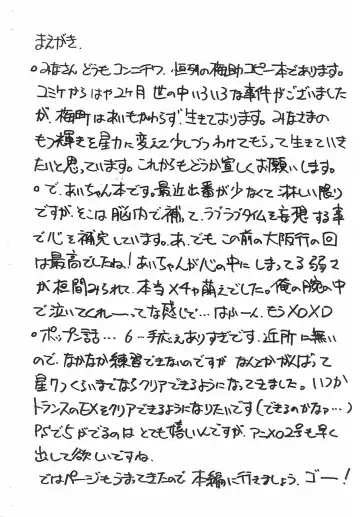 まえがき.
○みなさん どうもコンニチワ. 恒例の梅助コピー本であります。
コミケからはや2ヶ月 世の中いろいろな事件がございました
が、梅町はあいもかわらず、生きております。みなさまの
もつ輝きを星力に変えて少しづつわけてもらって生きていき
たいと思っています。これからもどうか宜しくお願いします。
○で、あいちゃん本です。最近出番が少なくて淋しい限り
ですが、そこは脳内で補て、ラブラブタイムを妄想する事
で心を補完しています。あ、でも この前の大阪行の回
は最高でしたね!あいちゃんが心の中に しまってる弱さ
が垣間みられて、本当メチャ萌えでした。俺の腕の中
で泣いてくれーってな感じで…はふーん。もうXOXD
○ポップン話… 6ー手応えありすぎです。近所に無い
ので、なかなか練習できないのですが なんとかがんばって
星7つくらいまでならクリアできるようになってきました。いつか
トランスのEXをクリアできるようになりたいです(できるのかなァ…)
PSで5がでるのは とても嬉しいんですが、アニメロ2号も早く
出して欲しいですね.
ではページもうまってきたので 本編に行きましょう、ゴー!